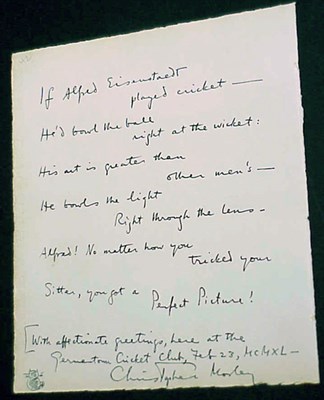 If Alfred Eisenstaedt
played cricket —
He'd bowl the ball
right at the wicket:
His art is greater than
other men's —
He bowls the light
Right through the lens —
Alfred! No matter how you
tricked your
Sitter, you got a
Perfect Picture!
[With affectionate greetings, here at the
Germantown Cricket Club, Feb 23, MCMXL —
Christopher Morley